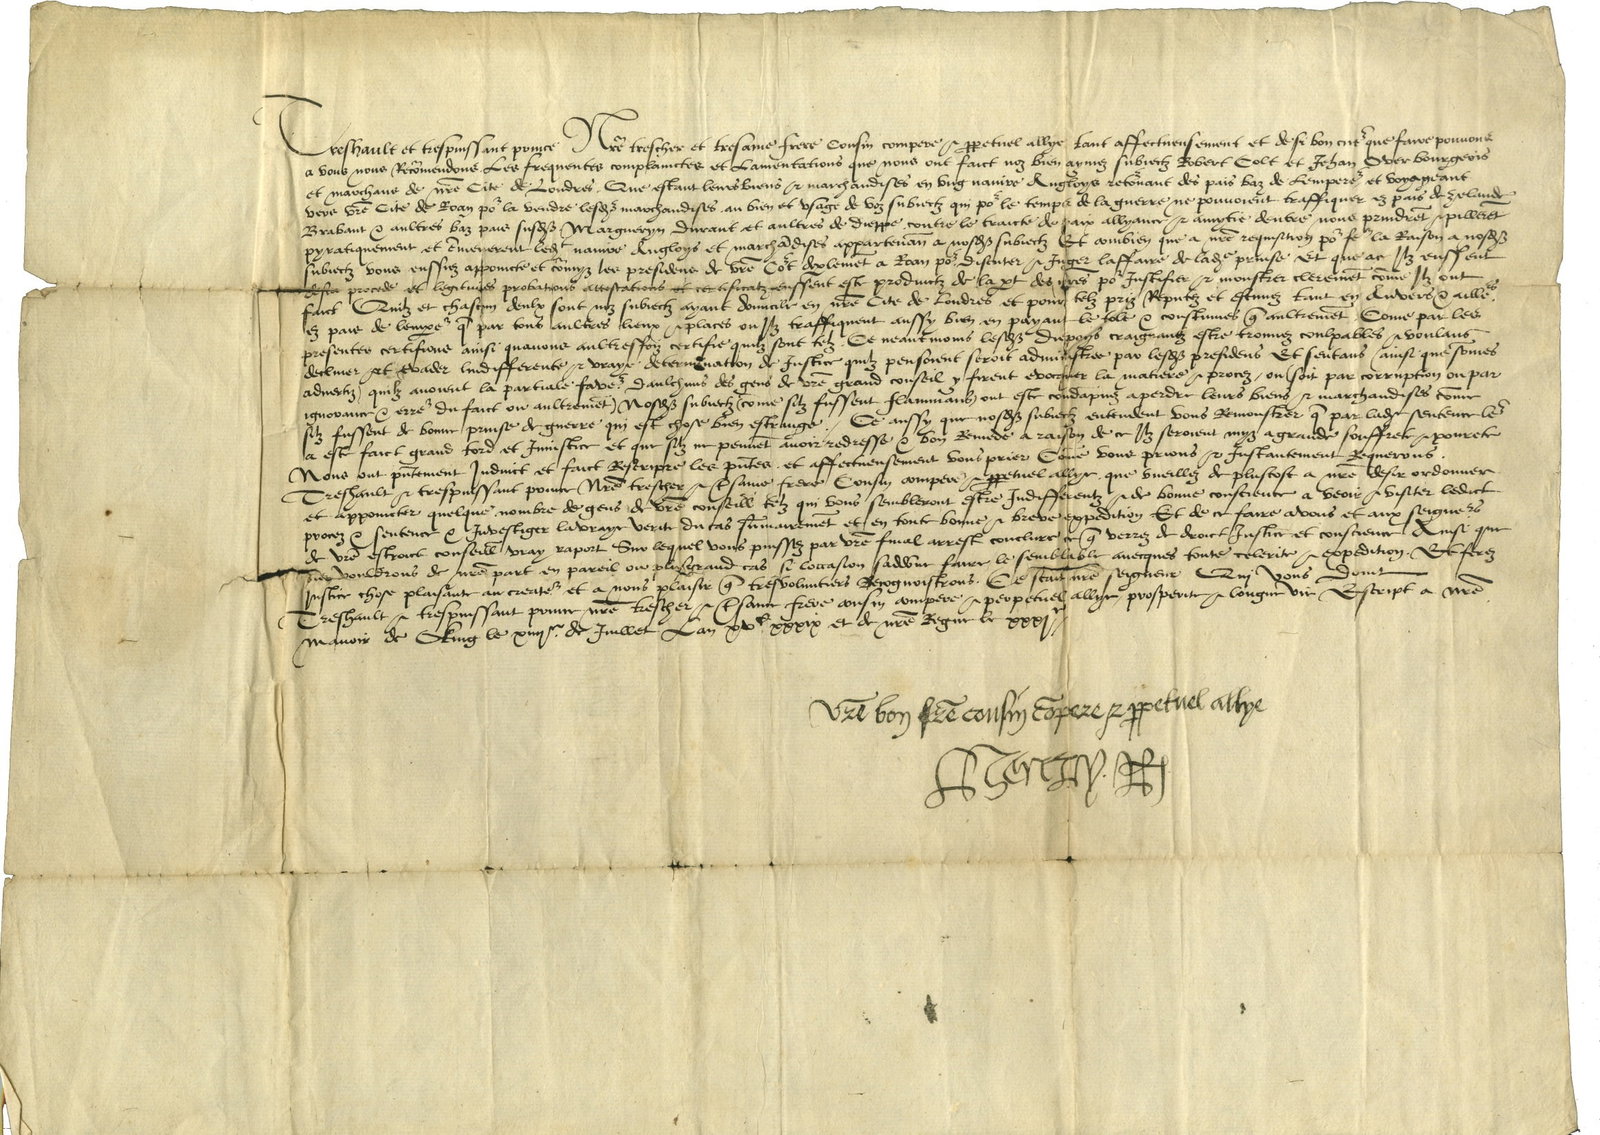 Treshault et trespuissant prince Nre trescher et tresame frere Cousin compere et ppetuel allye tant affectueusement et de si bon cueur que faire pouvons
a vous nous Recomendons Les frequentes complainctes et Lamentations que nous ont faict noz bien aymez subiectz Robert Colt et Jehan Over bourgeois
et marchans de nre Cite de Londres. Que estant leurs biens et marchandises en ung navire Angloys retornant des pais baz de Lempereur et voyageant
vers vre Cite de Roan por la vendre lesd marchandises au bien et usage de voz subiectz qui por le temps de la guerre ne pouvoient traffiquer es pais de Zelande
Brabant et aultres baz pais susd Margueryn Durant et aultres de dieppe contre le traicte de paix allyance et amytie dentre nous prindret et pilleret
pyratiquement et emenerent led navire Angloys et marchadises appartenan a nosd subiectz Et combien que a nre requisition por fe la Raison a nosd
subiectz vous eussiez appoincte et comyz les presidens de vre Cot de plemet a Roan por discuter et Juger laffaire de lade prinse Et que Jlz eussent
procede et legitimes probations attestations et certificatz eussent este productz de la pt des por Justifier et monstrer cleremet come Jlz ont
faict Quilz et chascun deulx sont noz subiectz ayant domicile en nre Cite de Londres et pour telz priz Reputez et estimez tant en Anvers et ailles
es pais de lempe q par tous aultres lieux et places ou Jlz traffiquent aussy bien en payant le et coustumes q aultremet Come par les
presentes certifions ainsi quavons aultresfoiz certifie quilz sont telz Ce neantmoins lesd Diepoys craignantz estre trouvez coulpables et voulans
decliner et Evader lindifferente et vraye determination de Justice quilz pensoient seroit administree par lesd presidens Et sentans ainsi que somes
advertz quilz avoient la partiale fave daulchuns des gens de vre grand conseil y firent evocquer la matiere et procez, ou soit par corruption ou par
ignorance et erre du faict ou aultremet Nosd subiectz come silz fussent flammans ont este condapnez a perdre leurs biens et marchandises come
silz fussent de bonne prinse de guerre qui est chose bien estrange. Et aussy que nosd subiectz entendent vous Remonstrer q par lade sentence le
a este faict grand tord et Iniustice et que silz ne peuvet avoir redresse et bon Remede a raison de ce Jlz seroient myz a grande souffrete et povrete
Nous ont pntement Induict et faict Rescripre les pntes et affectueusement vous prier Come vous prions et Instantement Requerons.
Treshault et trespuissant prince Nre trescher et tsame frere Cousin compere et ppetuel allye que vueillez de plustost a nre desir ordonner
et appoincter quelque nombre de gens de vre conseill telz qui vous sembleront estre Indifferentz et de bonne conscience a veoir et visiter ledict
procez et sentence et Investiger la vraye verite du cas summairemet et en toute bonne et breve expedition Et de ce faire a vous et aux seigneurs
de vre estroict conseill vray raport Sur lequel vous puissiez par vre final arrest conclure ce q verrez de droit Justice et conscience Ainsi que
vouldrons de nre part en pareil ou plusgrand cas si loccasion saddone faire le semblable avecques toute celerite et expedition Et ferez
Justice chose plaisante au create et a nous plaisir q tresvoluntiers Recognoistrons. Ce scait nre seigneur Qui Vous doint
Treshault et trespuissant prince nre trescher et tsame frere cousin compere et perpetuel allye prosperite et longue vie Escript a nre
manoir de Oking le xiiije de Juillet Lan xvc xxxix et de nre Regne le xxxj
Vre bon fre cousin compere et ppetuel allye
Henry R